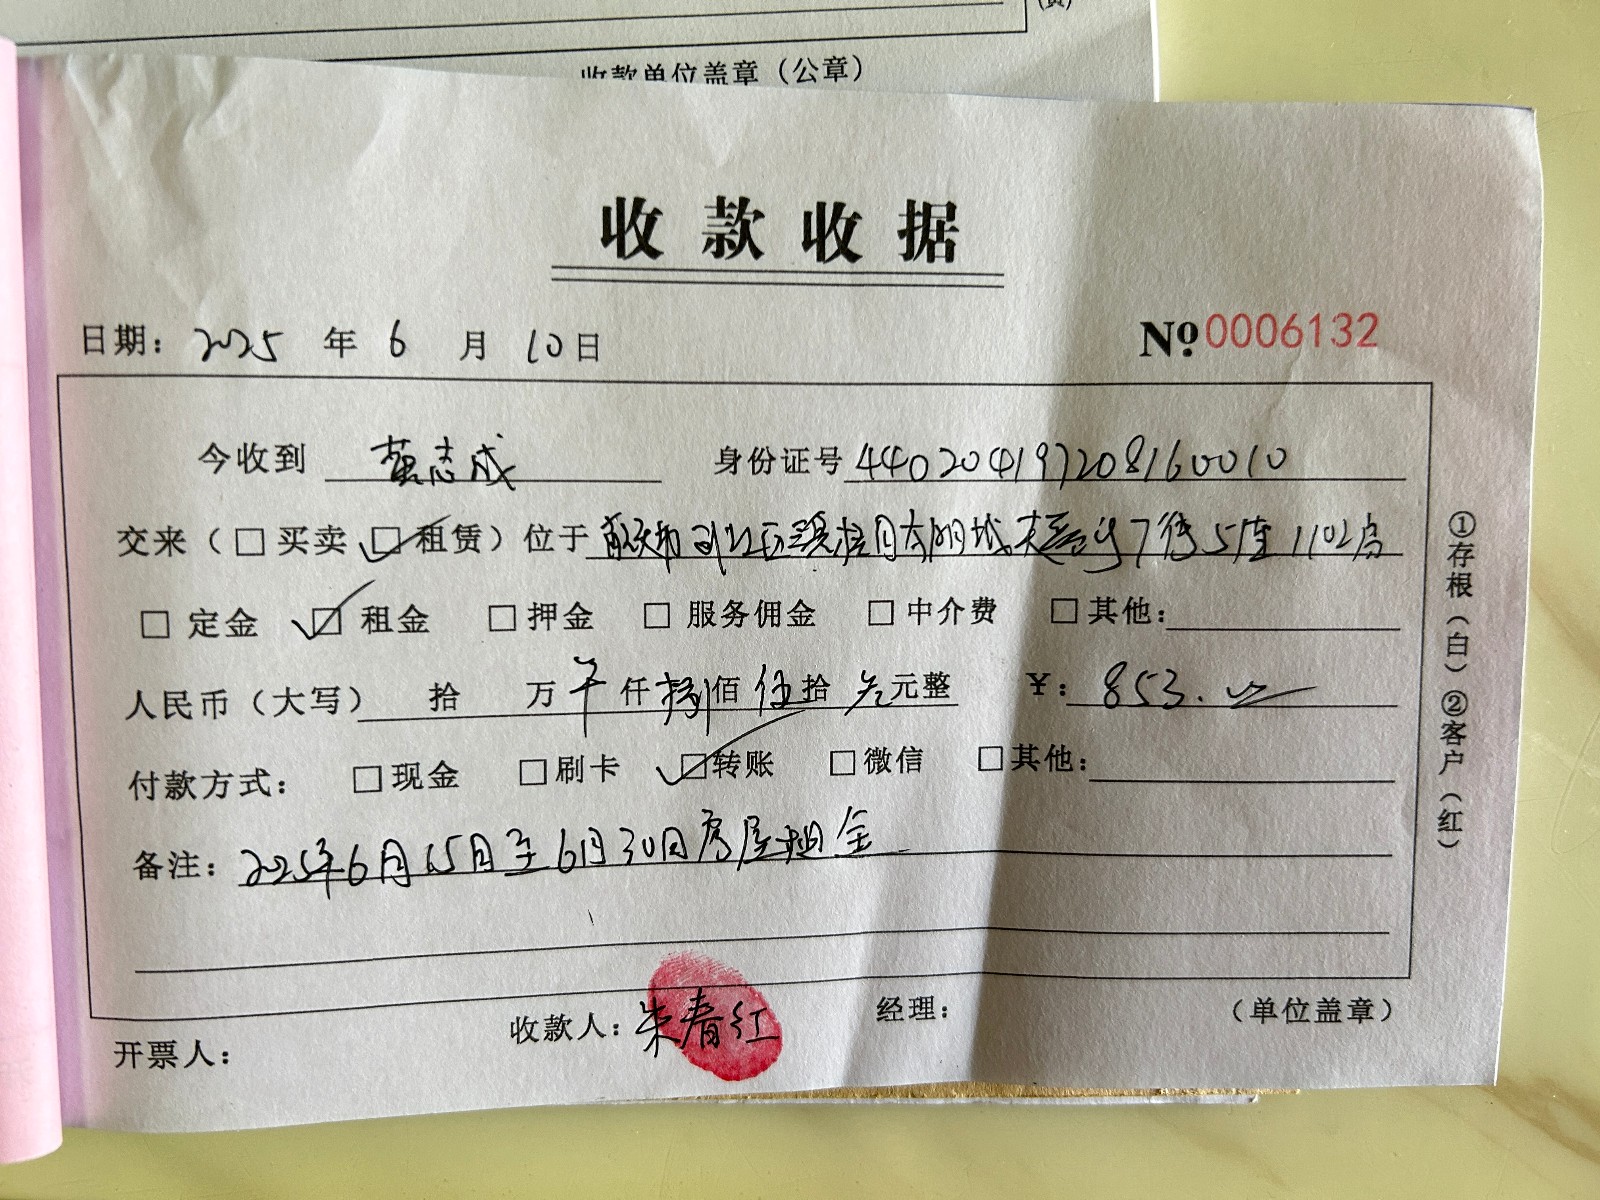 收款单位盖章（公章）
收款收据
日期：2025 年 6 月 10日
№0006132
今收到 黄志成 身份证号 440204197208160010
交来（□买卖 ☑租赁）位于 市 区 碧桂园太阳城 街 5座1102房
□ 定金 ☑ 租金 □ 押金 □ 服务佣金 □ 中介费 □ 其他：
人民币（大写） 拾 万 仟 捌佰 伍拾 元整 ￥：853.
付款方式： □现金 □刷卡 ☑转账 □微信 □其他：
备注：2025年6月15日至6月30日房屋租金
收款人：朱春红 经理： （单位盖章）
开票人：
①存根（白）②客户（红）